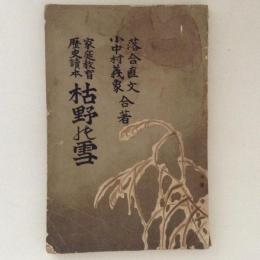 落合直文
小中村義象 合著
家庭教育
歴史讀本
枯野の雪